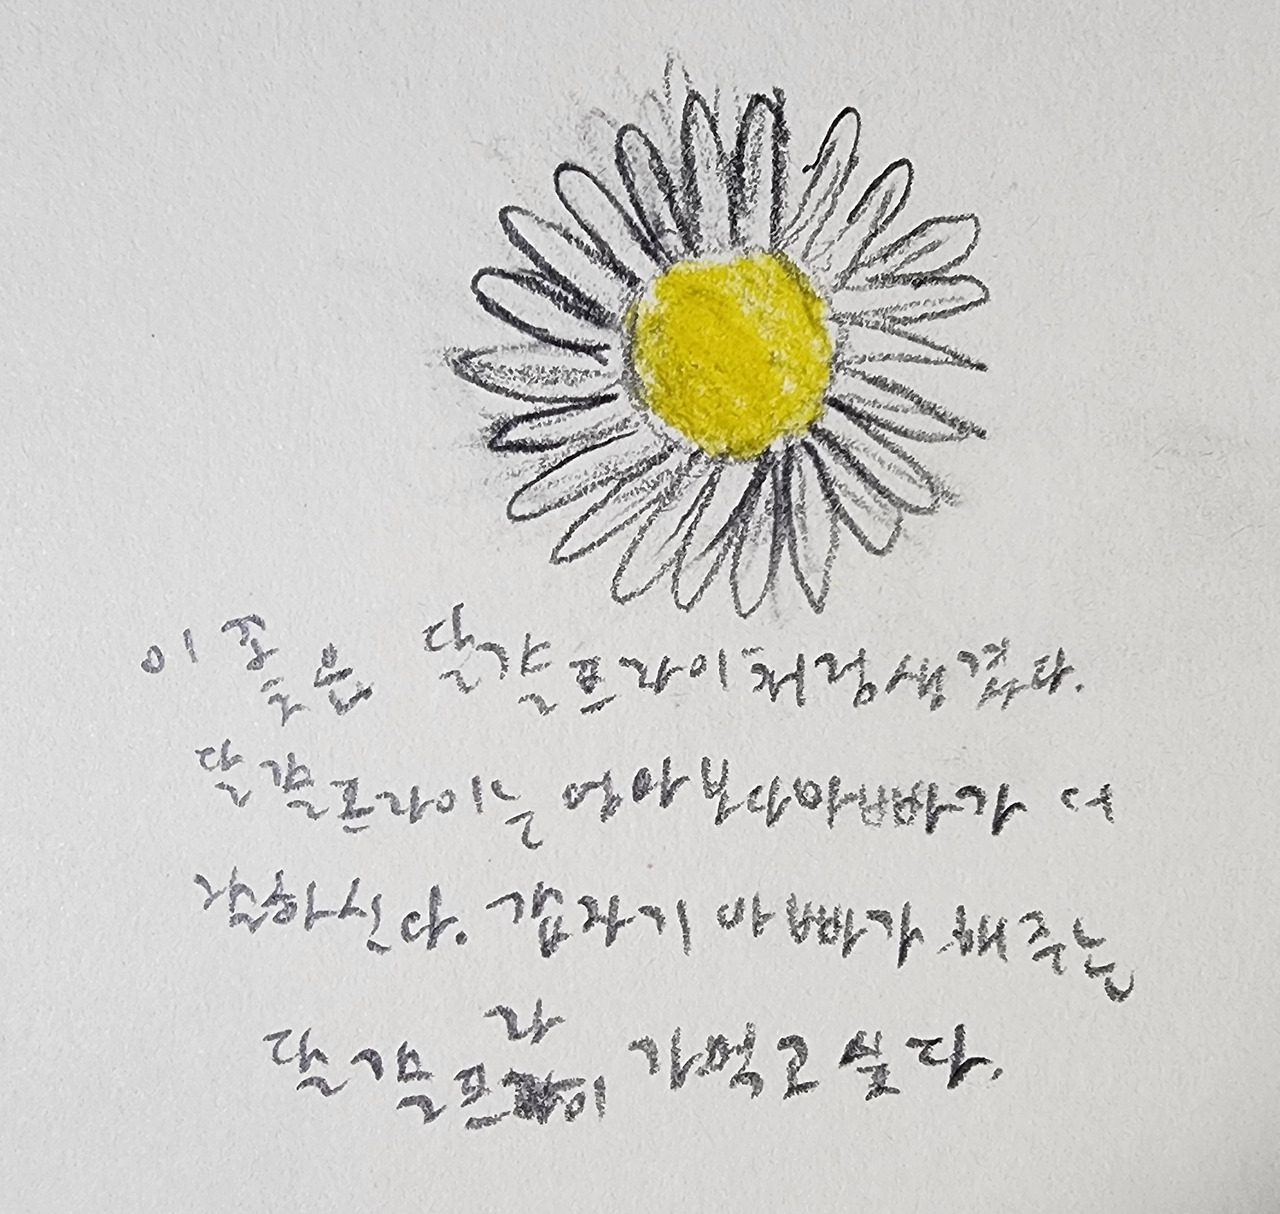 이 꽃은 달걀프라이처럼생겼다.
달걀프라이는 엄마보다아빠가 더
잘하신다. 갑자기 아빠가 해주는
달걀프라이가먹고싶다.